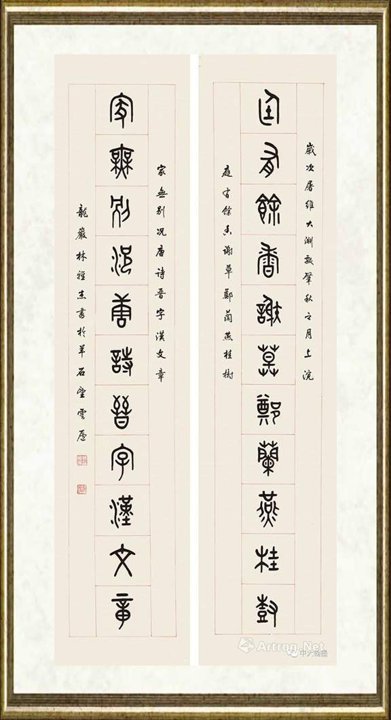 歲次屠維大淵獻肇秋之月上浣
庭有餘香謝草鄭蘭燕桂樹
庭有餘香謝草鄭蘭燕桂樹
家無別況唐詩晉字漢文章
家無別況唐詩晉字漢文章
龍巖林杰書於羊石雲
Artron.Net